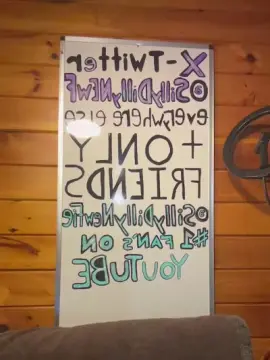 X-Twitter
@SillyDillyNewF
everywhere else
+ ONLY
FRIENDS
@SillyDillyNewfie
#1 FAN'S ON
YOUTUBE